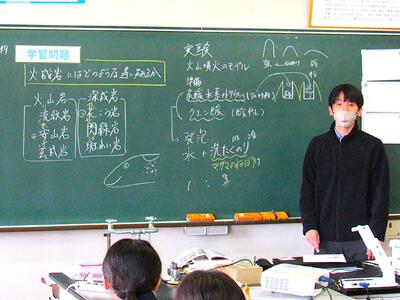 学習問題
火成岩にはどのような違いがあるか
火山岩
流紋岩
安山岩
玄武岩
深成岩
花こう岩
閃緑岩
斑れい岩
実験
火山噴火のモデル
準備
炭酸水素ナトリウム
クエン酸(酸性)
発泡
水 + 洗たくのり
マグマのねばりけ
1 : 3
強
弱